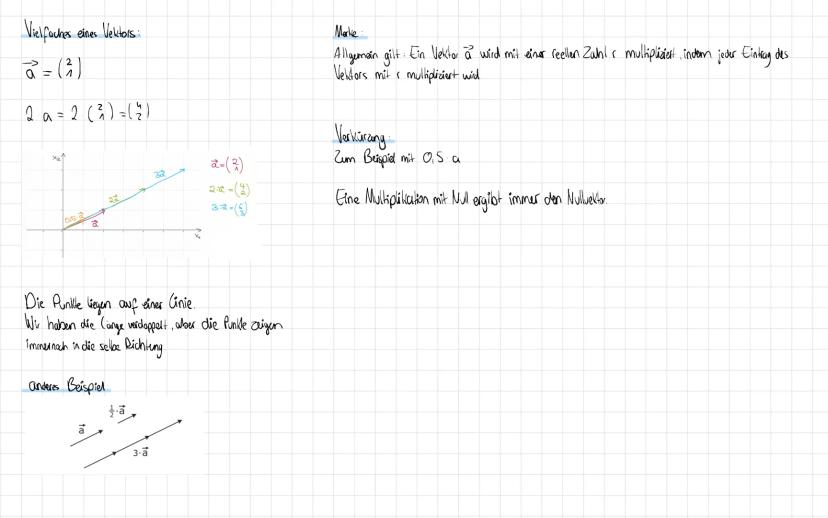 Vielfaches eines Vektors:
a⃗ = (2 1)
2 a = 2 (2 1) = (4 2)
x₂
3a⃗
2a⃗
0,5·a⃗
a⃗
x₁
a⃗ = (2 1)
2·a⃗ = (4 2)
3·a⃗ = (6 3)
Die Punkte liegen auf einer Linie.
Wir haben die Länge verdoppelt, aber die Punkte zeigen
immernoch in die selbe Richtung
anderes Beispiel
½·a⃗
a⃗
3·a⃗
Merke:
Allgemein gilt: Ein Vektor a⃗ wird mit einer reellen Zahl r multipliziert, indem jeder Eintrag des
Vektors mit r multipliziert wird
Verkürzung:
Zum Beispiel mit 0,5 a
Eine Multiplikation mit Null ergibt immer den Nullvektor.